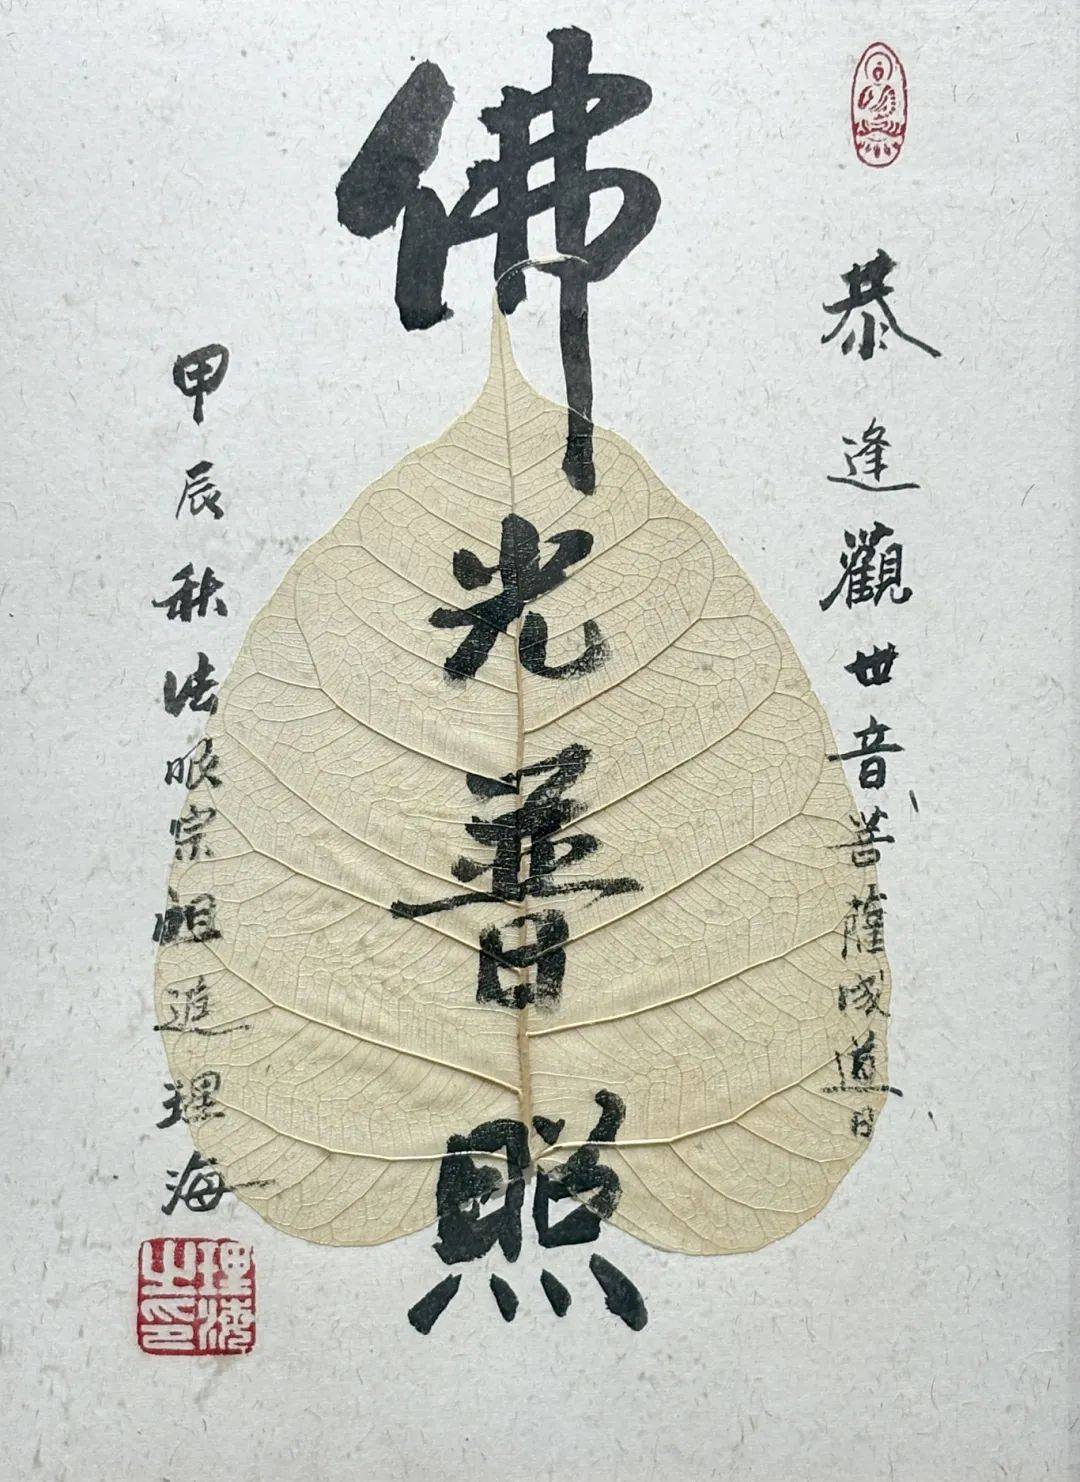 恭逢觀世音菩薩成道日
佛光普照
甲辰秋法眼宗祖庭理海
理海之印